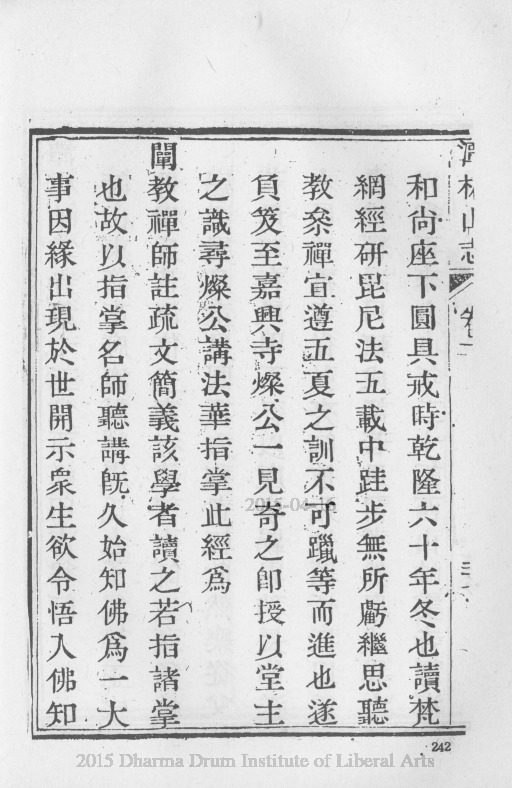 林山志
和尙座下圓具戒時乾隆六十年冬也讀梵
網經研毘尼法五載中跬步無所虧繼思聽
教叅禪宜遵五夏之訓不可躐等而進也遂
負笈至嘉興寺燦公一見奇之卽授以堂主
之識尋燦公講法華指掌此經爲
闡教禪師註疏文簡義該學者讀之若指諸掌
也故以指掌名師聽講旣久始知佛爲一大
事因緣出現於世開示衆生欲令悟入佛知
242
2015-04-16
2015 Dharma Drum Institute of Liberal Arts